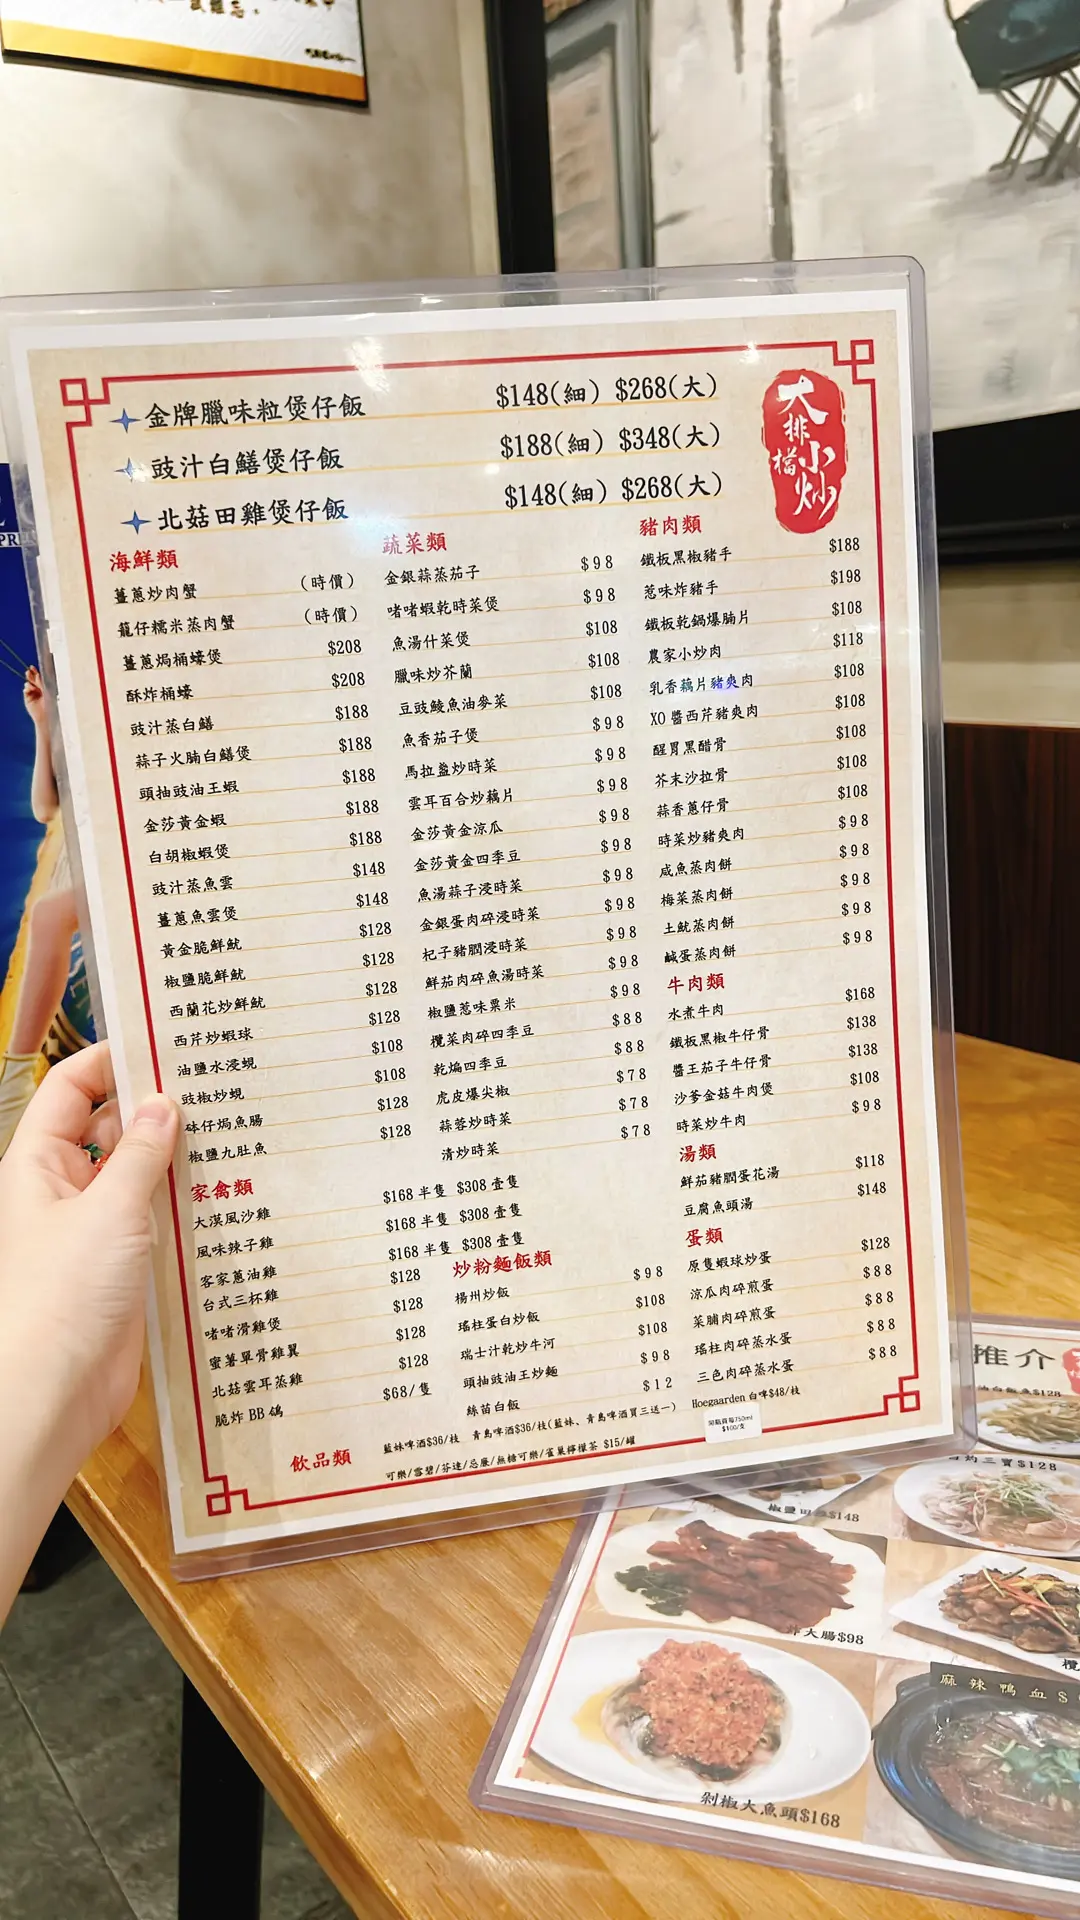 金牌臘味粒煲仔飯 $148(細) $268(大)
豉汁白鱔煲仔飯 $188(細) $348(大)
北菇田雞煲仔飯 $148(細) $268(大)
大排檔小炒
海鮮類
薑蔥炒肉蟹 (時價)
籠仔糯米蒸肉蟹 (時價)
薑蔥焗桶蠔煲 $208
酥炸桶蠔 $208
豉汁蒸白鱔 $188
蒜子火腩白鱔煲 $188
頭抽豉油王蝦 $188
金莎黃金蝦 $188
白胡椒蝦煲 $188
豉汁蒸魚雲 $148
薑蔥魚雲煲 $148
黃金脆鮮魷 $128
椒鹽脆鮮魷 $128
西蘭花炒鮮魷 $128
西芹炒蝦球 $128
油鹽水浸蜆 $108
豉椒炒蜆 $108
砵仔焗魚腸 $128
椒鹽九肚魚 $128
家禽類
大漠風沙雞 $168 半隻 $308 壹隻
風味辣子雞 $168 半隻 $308 壹隻
客家蔥油雞 $168 半隻 $308 壹隻
台式三杯雞 $128
啫啫滑雞煲 $128
蜜薯單骨雞翼 $128
北菇雲耳蒸雞 $128
脆炸 BB 鴿 $68/隻
蔬菜類
金銀蒜蒸茄子 $98
啫啫蝦乾時菜煲 $98
魚湯什菜煲 $108
臘味炒芥蘭 $108
豆豉鯪魚油麥菜 $108
魚香茄子煲 $98
馬拉盞炒時菜 $98
雲耳百合炒藕片 $98
金莎黃金涼瓜 $98
金莎黃金四季豆 $98
魚湯蒜子浸時菜 $98
金銀蛋肉碎浸時菜 $98
杞子豬膶浸時菜 $98
鮮茄肉碎魚湯時菜 $98
椒鹽惹味粟米 $98
欖菜肉碎四季豆 $88
乾煸四季豆 $88
虎皮爆尖椒 $78
蒜蓉炒時菜 $78
清炒時菜 $78
炒粉麵飯類
楊州炒飯 $98
瑤柱蛋白炒飯 $108
瑞士汁乾炒牛河 $108
頭抽豉油王炒麵 $98
絲苗白飯 $12
豬肉類
鐵板黑椒豬手 $188
惹味炸豬手 $198
鐵板乾鍋爆腩片 $108
農家小炒肉 $118
乳香藕片豬爽肉 $108
XO 醬西芹豬爽肉 $108
醒胃黑醋骨 $108
芥末沙拉骨 $108
蒜香蔥仔骨 $108
時菜炒豬爽肉 $98
咸魚蒸肉餅 $98
梅菜蒸肉餅 $98
土魷蒸肉餅 $98
鹹蛋蒸肉餅 $98
牛肉類
水煮牛肉 $168
鐵板黑椒牛仔骨 $138
醬王茄子牛仔骨 $138
沙爹金菇牛肉煲 $108
時菜炒牛肉 $98
湯類
鮮茄豬膶蛋花湯 $118
豆腐魚頭湯 $148
蛋類
原隻蝦球炒蛋 $128
涼瓜肉碎煎蛋 $88
菜脯肉碎煎蛋 $88
瑤柱肉碎蒸水蛋 $88
三色肉碎蒸水蛋 $88
飲品類
藍妹啤酒$36/枝 青島啤酒$36/枝(藍妹、青島啤酒買三送一) Hoegaarden 白啤$48/枝
可樂/雪碧/芬達/忌廉/無糖可樂/雀巢檸檬茶 $15/罐
750ml
$100/支
推介
$128
三寶$128
椒鹽田雞$148
大腸$98
麻辣鴨血$
剁椒大魚頭$168